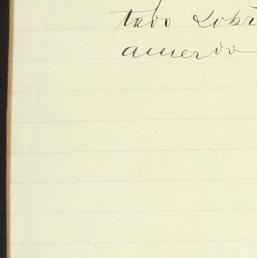 tado sobr
acuerdo